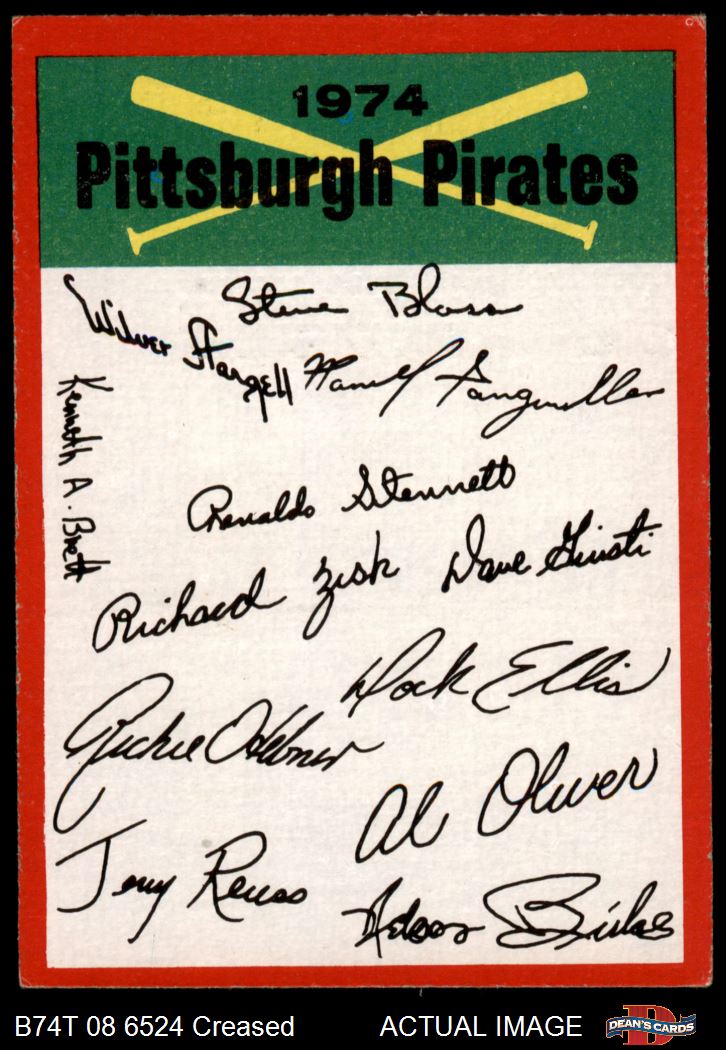 1974
Pittsburgh Pirates
Steve Blass
Wilver Stargell
Manuel Sanguillen
Kenneth A. Brett
Renaldo Stennett
Richard Zisk
Dave Giusti
Dock Ellis
Richie Hebner
Al Oliver
Jerry Reuss
B74T 08 6524 Creased
ACTUAL IMAGE
DEAN'S CARDS